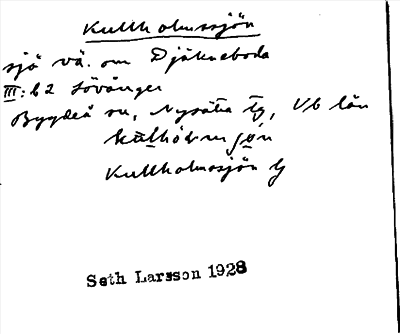 Kullholmssjön
sjö vä. om Djäkneboda
III:b2 Lövånger
Bygdeå sn, Nysätra tg, Vb län
Kullholmssjön lj
Seth Larsson 1928